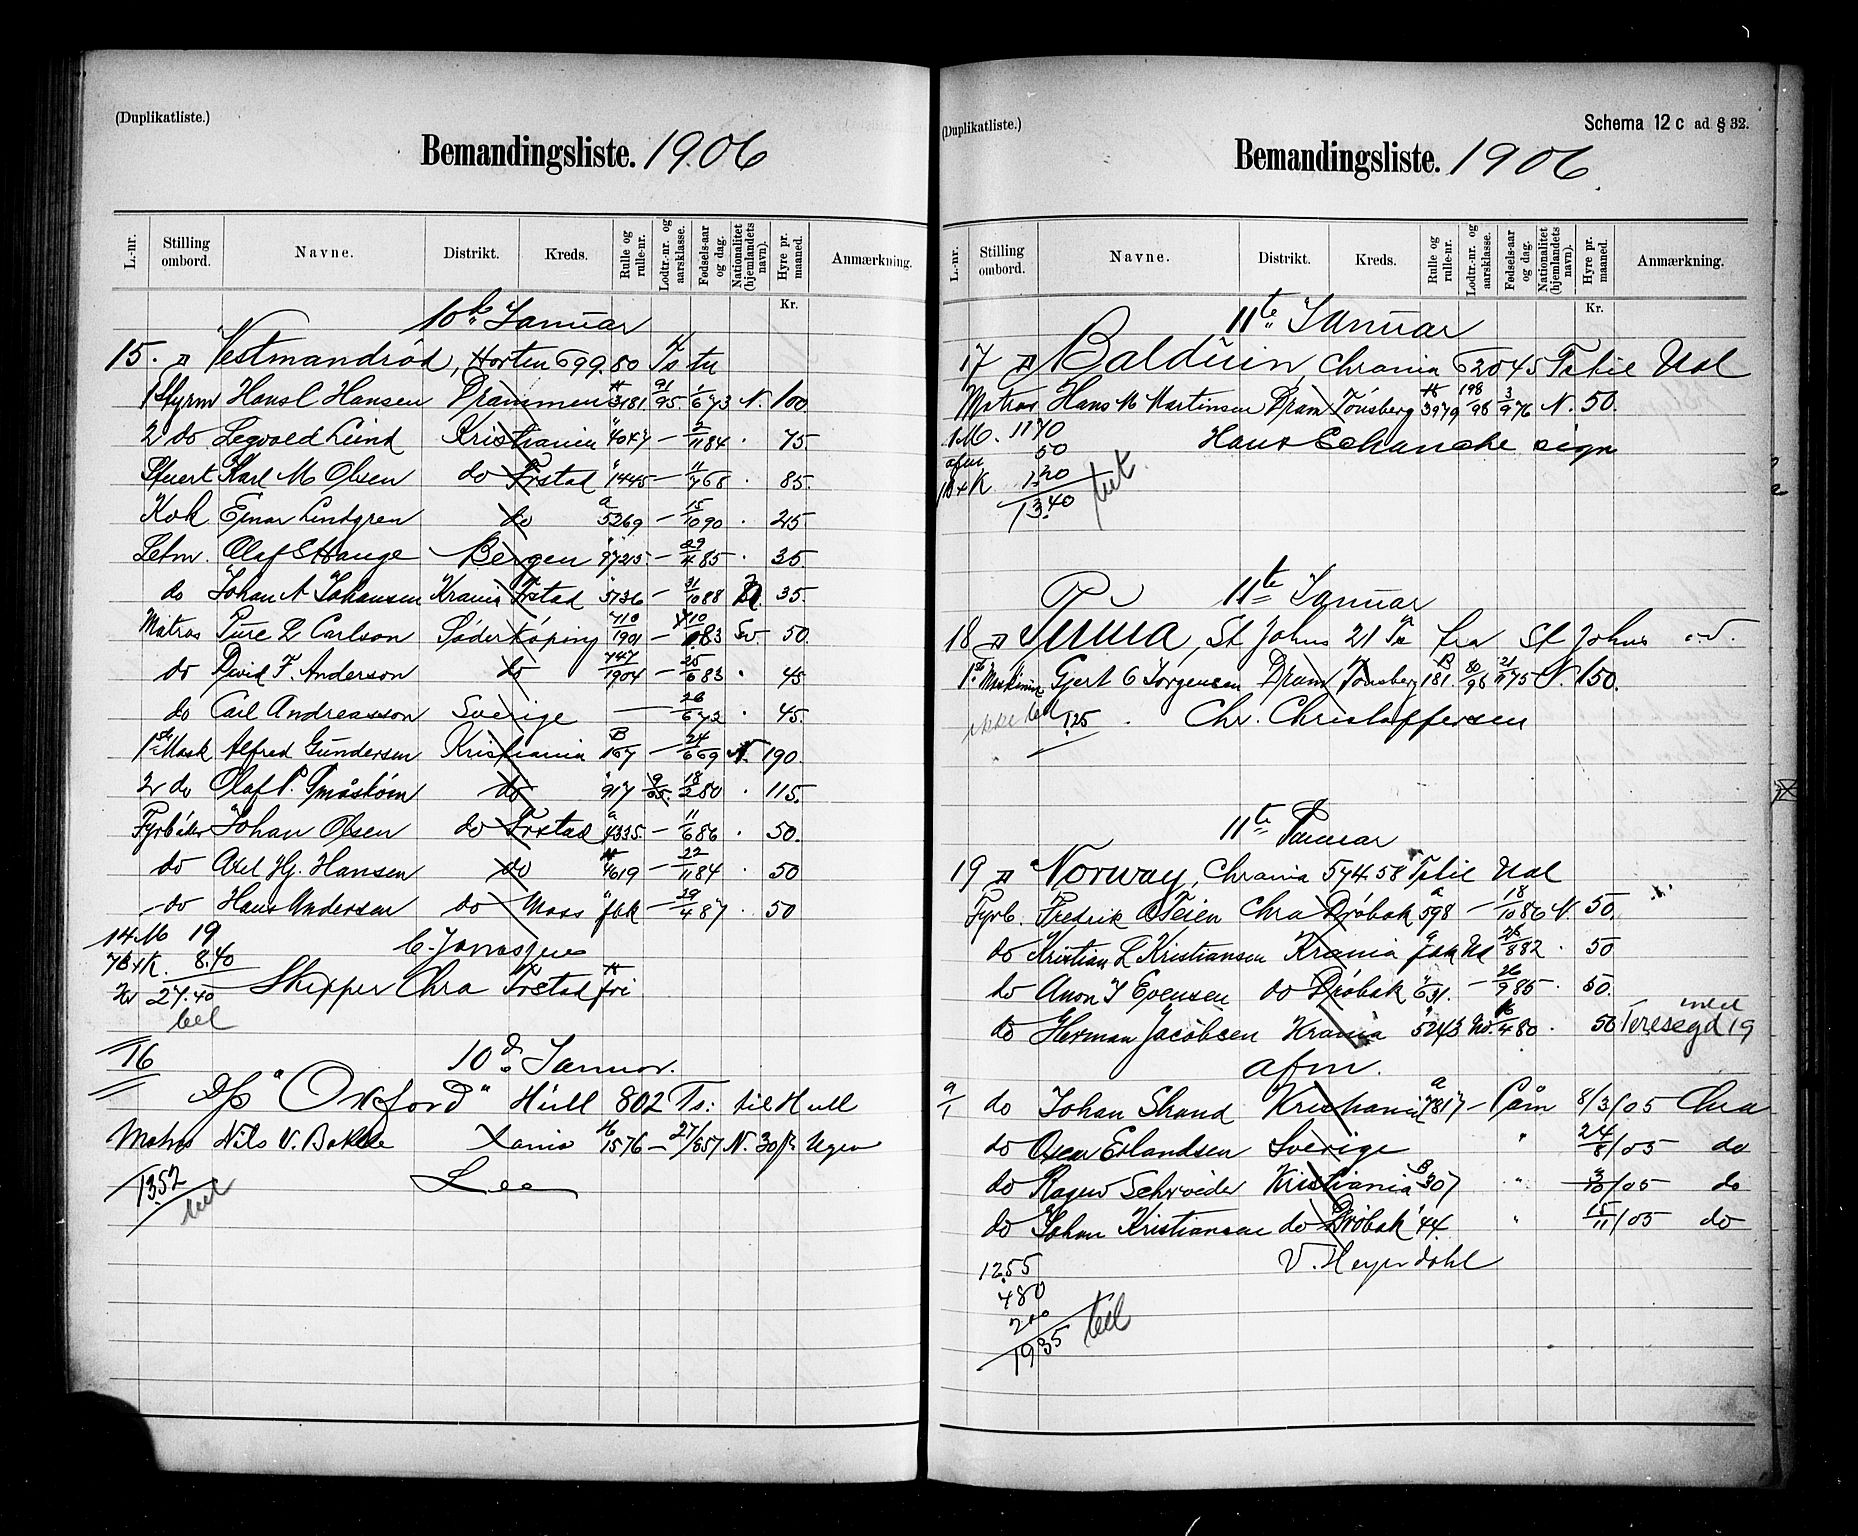 (Duplikatliste.)
Bemandingsliste. 1906
L.-nr. Stilling ombord. Navne. Distrikt. Kreds. Rulle og rulle-nr. Lodtr.-nr. og aarsklasse. Fødsels-aar og dag. Nationalitet (hjemlandets navn). Hyre pr. maaned. Anmærkning.
Kr.
10de Januar
15. Vestmandrød, Horten 699.80 Ts
1 Styrm Hans C Hansen Drammen 3181 91/95 1/6 73 N. 100
2 do Segvald Lund Kristiania 4047 — 2/11 84 . 75.
Stuert Karl M Olsen do Frstad 1445 — 11/7 68 . 85.
Kok Ejnar Lindgren do 5269 — 15/10 90 . 25
Letm. Olaf S Hauge Bergen 97215 — 29/4 85 . 35
do Johan A Johansen Krania Frstad 5736 — 31/10 88 35.
Matros Ture L Carlson Söderköping 710/1901 — 83 Sv. 50.
do David F. Anderson do 747/1904 — 25/6 83 . 45
do Carl Andreasson Sverige — 26/6 72 . 45.
1ste Mask Alfred Gundersen Kristiania B 167 — 24/6 69 N. 190.
2 do Olaf P. do 917 18/2 80 . 115.
Fyrbøter Johan Olsen do Frstad a 4335 — 11/6 86 . 50.
do Axel Hj. Hansen do 4619 — 22/11 84 . 50
do Hans Andersen do Moss fak — 29/4 87 . 50
14 M 19
8.40
Kr 27.40
bet
Skipper Chra Frstad fri
16 10de Januar.
D/S "Oxford" Hull 802 Ts: til Hull
Matros Nils V. Bakke Xania 1576 — 27/8 57 N. 30/- Ugen
13.52
bet
Lee
(Duplikatliste.)
Schema 12 c ad § 32.
Bemandingsliste. 1906
L.-nr. Stilling ombord. Navne. Distrikt. Kreds. Rulle og rulle-nr. Lodtr.-nr. og aarsklasse. Fødsels-aar og dag. Nationalitet (hjemlandets navn). Hyre pr. maaned. Anmærkning.
Kr.
11te Januar
17 Balduin, Chrania 620 45 Ts til Udl
Matros Hans M Martinsen Dram Tønsberg 3979 198/98 3/9 76 N. 50.
1 M. 11.70
50
1.20
13.40
bet
Hans Schancke sign
11te Januar
18 St Johns 21 Ts fra St Johns
1ste Maskinm Gjert C Jørgensen Dram Tønsberg B 181. 80/98 21/11 75 N. 150.
ikke bet 1.25 Chr. Christoffersen
11te Januar
19 Norway, Chrania 574.58 Ts til Udl
Fyrb. Fredrik O Teien Chra Drøbak a 598 — 18/10 86 N. 50.
do Kristian L Kristiansen Krania fak Ud 8 82 . 50
do Anon J Evensen do Drøbak 631. — 26/9 85 . 50.
do Herman Jacobsen Krania 5243 Ud. 16/4 80 . 50
afm.
9/1 do Johan Strand Kristiania a 7817 — Paam 8/3/05 Chra
do Oscar Erlandsen Sverige " 24/8/05 do
do Ragnv Schrøder Kristiania B 307 " 3/10/05 do
do Johan Kristiansen do Drøbak 44. " 15/11/05 do
12.55
4.80
2.00
19.35
bet
V. Heyerdahl